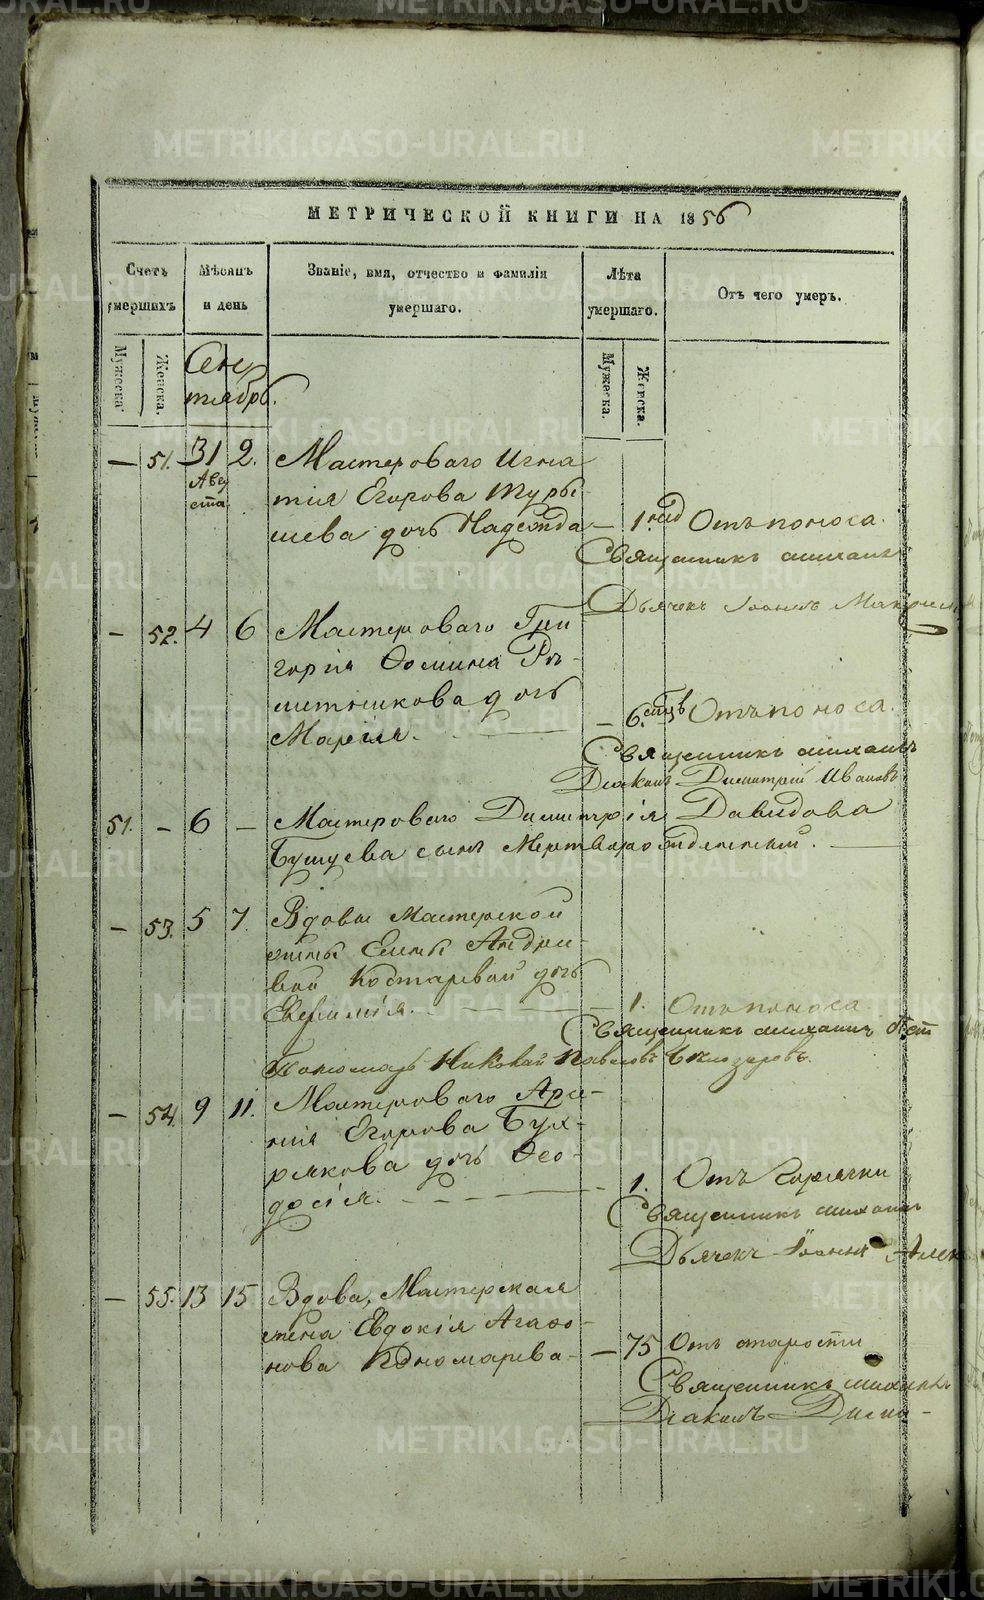 МЕТРИЧЕСКОЙ КНИГИ НА 1856
Счетъ умершихъ
Мѣсяцъ и день
Званіе, имя, отчество и фамилія умершаго.
Лѣта умершаго.
Отъ чего умеръ.
Мужеска.
Женска.
Мужеска.
Женска.
Сен
тябрь.
— 51. 31 2. Мастероваго Игна
Авгу
ста
тія Егорова Туры
шева дочь Надежда — 1. нед Отъ поноса.
Священникъ Михаилъ
Дьячекъ Іоаннъ
— 52. 4 6 Мастероваго Гри
горія Ѳомина Рѣ-
шетникова дочь
Марія. — 6. Отъ поноса.
Священникъ Михаилъ
Діаконъ Димитрій Ивановъ
51. — 6 — Мастероваго Димитрія Давидова
Бушуева сынъ Мертворожденный.
— 53. 5 7. Вдовы Мастерской
жены Елены Андре-
вой Костаревой дочь
Евфимія. — 1. Отъ поноса
Священникъ Михаилъ
Пономарь Николай Павловъ
— 54. 9 11. Мастероваго Арсе-
нія Егорова Бух-
рякова дочь Ѳео-
досія. — 1. Отъ Горячки
Священникъ Михаилъ
Дьячекъ Іоаннъ Алек
— 55. 13 15 Вдова, Мастерская
жена Евдокія Агафо-
нова Пономарева — 75 Отъ старости
Священникъ Михаилъ
Діаконъ Дими-
METRIKI.GASO-URAL.RU